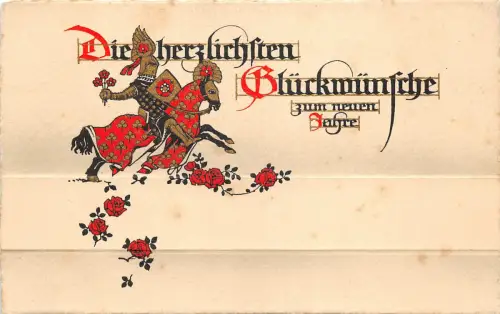 Die herzlichsten
Glückwünsche
zum neuen
Jahre